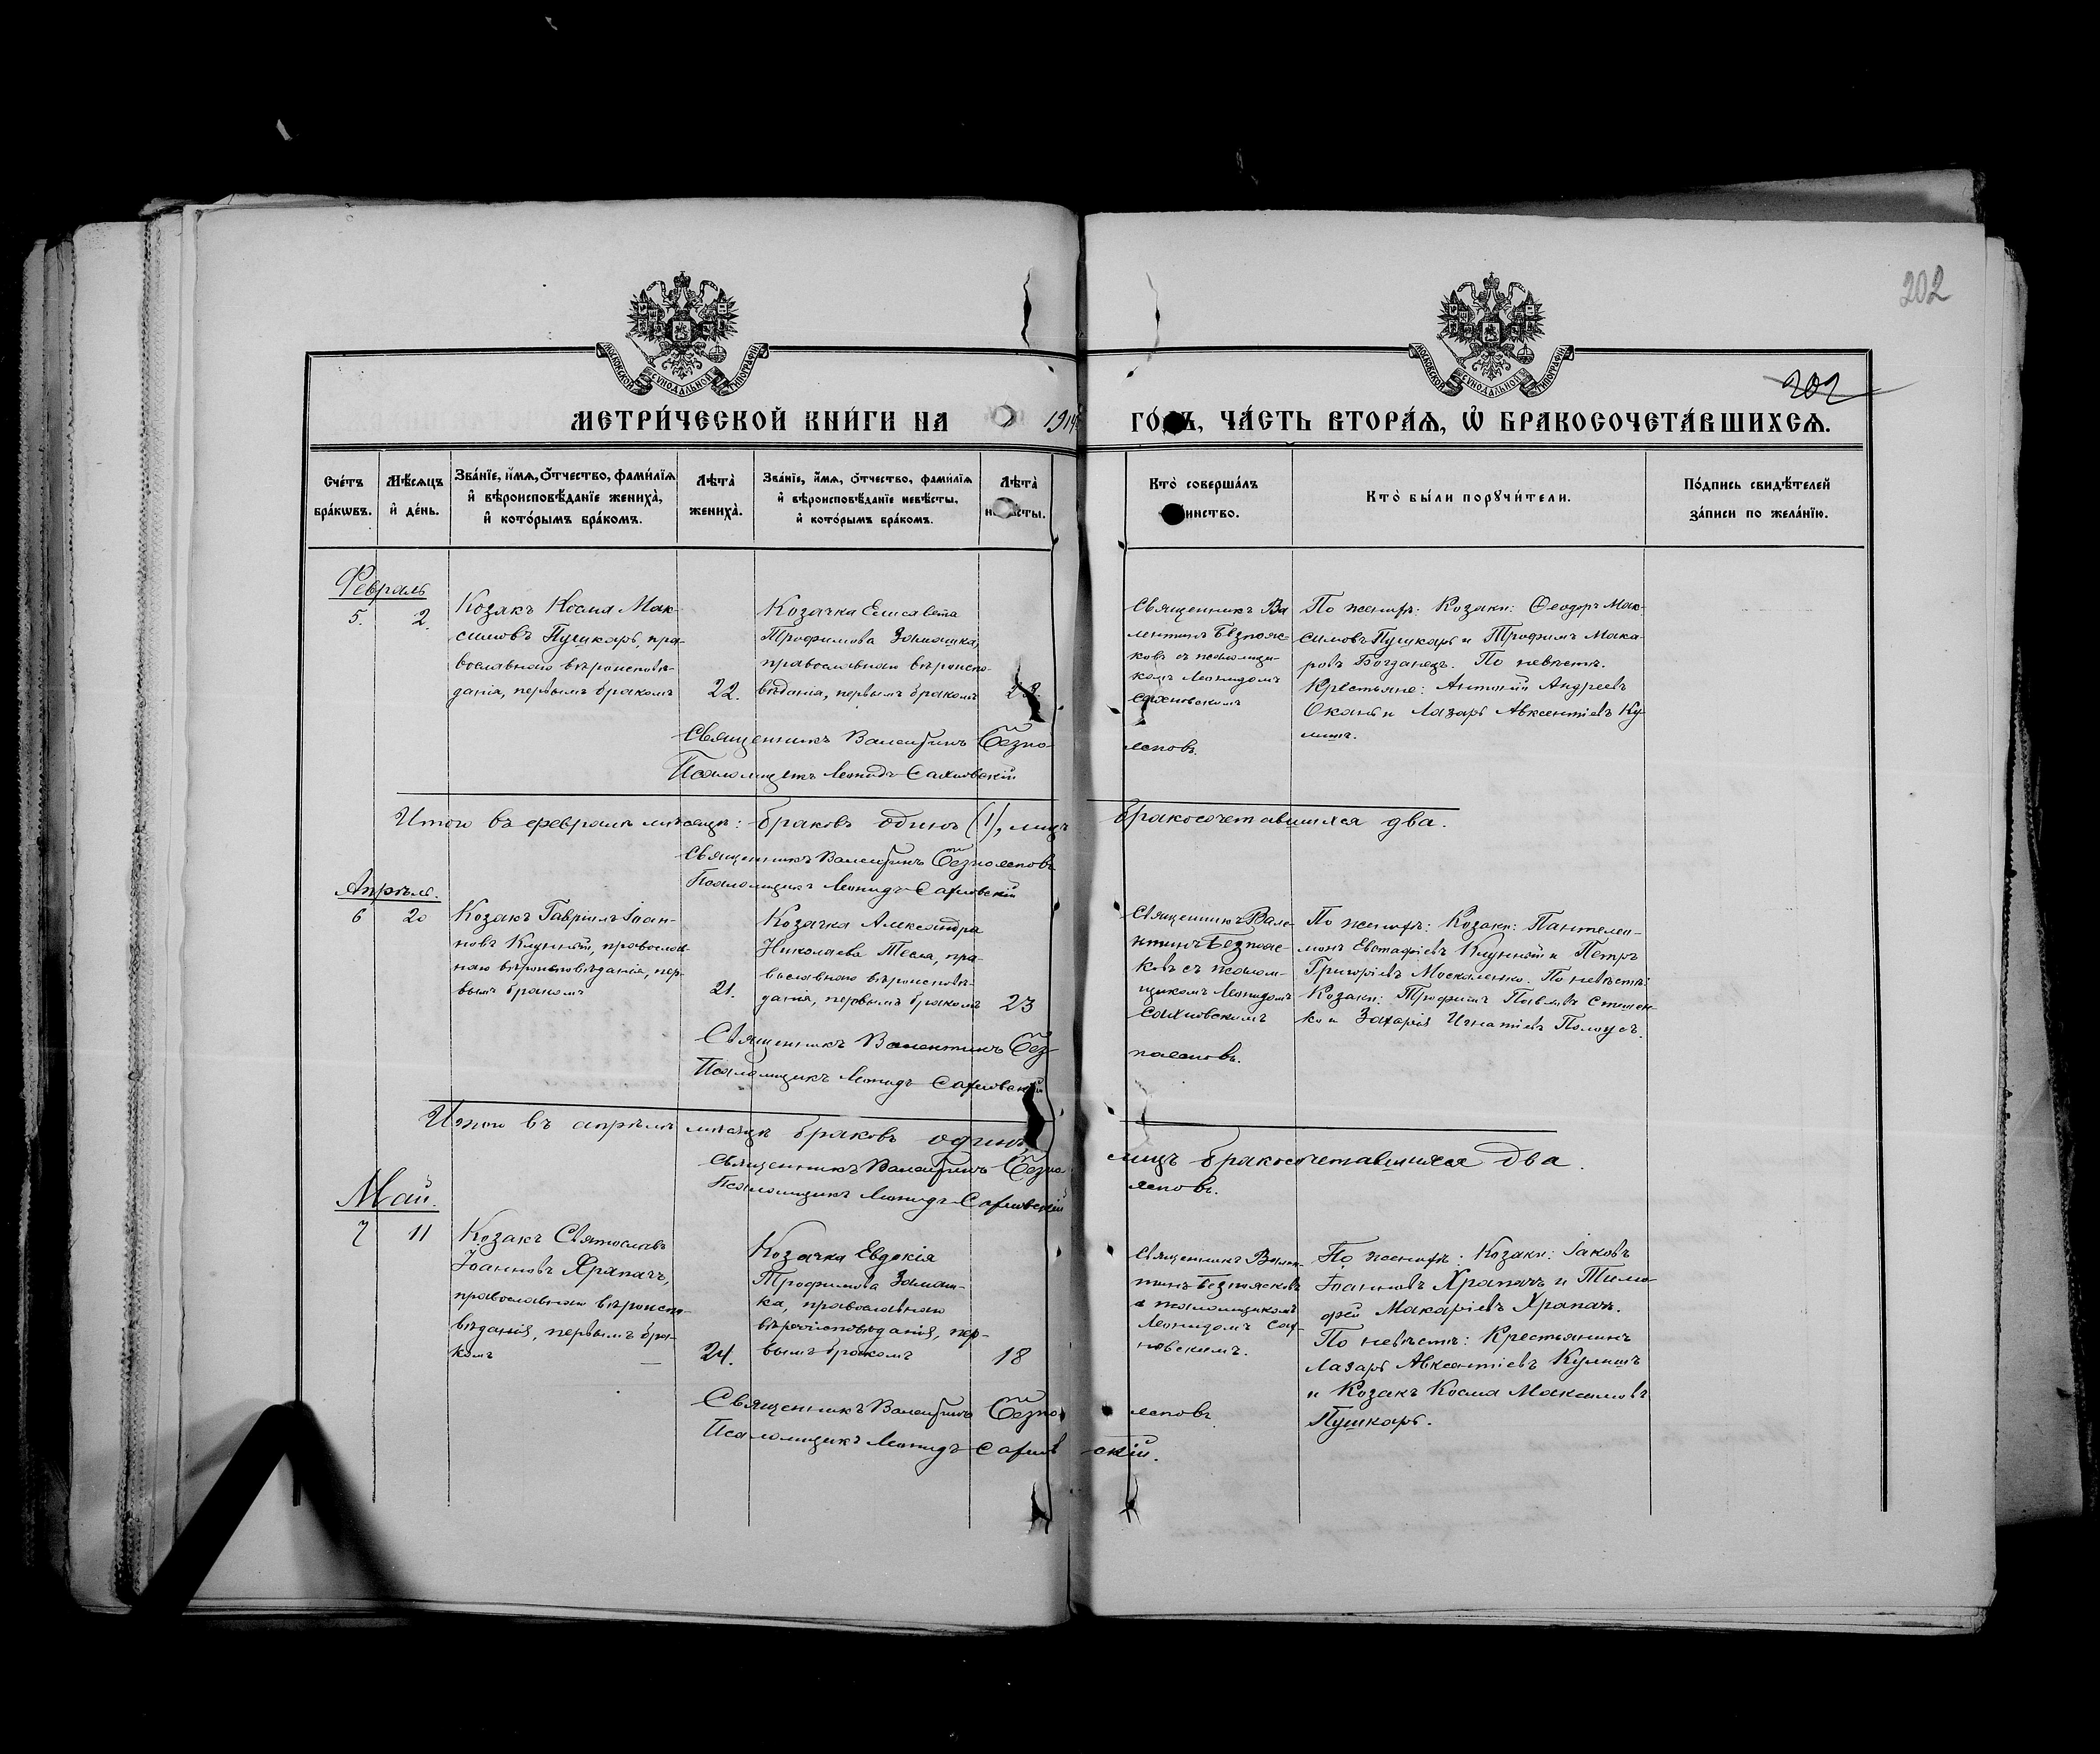 202
МОСКОВСКОЙ СѴНОДАЛЬНОЙ ТИПОГРАФІИ
МОСКОВСКОЙ СѴНОДАЛЬНОЙ ТИПОГРАФІИ
202
МЕТРИ́ЧЕСКОЙ КНИ́ГИ НА 1914 ГО́ДЪ, ЧА́СТЬ ВТОРА́Ѧ, Ѽ БРАКОСОЧЕТА́ВШИХСѦ.
Сче́тъ бра́кѡвъ.
Мѣ́сѧцъ и҆ де́нь.
Зва́нїе, и҆́мѧ, ѻ҆́тчество, фами́лїѧ и҆ вѣроисповѣ́данїе жениха̀, и҆ кото́рымъ бра́комъ.
Лѣта̀ жениха̀.
Зва́нїе, и҆́мѧ, ѻ҆́тчество, фами́лїѧ и҆ вѣроисповѣ́данїе невѣ́сты, и҆ кото́рымъ бра́комъ.
Лѣта̀ невѣ́сты.
Кто̀ соверша́лъ таи́нство.
Кто̀ бы́ли порꙋчи́тели.
По́дпись свидѣ́телей за́писи по жела́нїю.
Февраль
5. 2.
Козакъ Косма Мак-
симовъ Пушкарь, пра-
вославнаго вѣроисповѣ-
данія, первымъ бракомъ
22.
Козачка Елисавета
Трофимова Замашка,
православнаго вѣроиспо-
вѣданія, первымъ бракомъ
23.
Священникъ Ва
лентинъ Безпояс
ковъ съ псаломщи-
комъ Леонидомъ
Сахновскимъ
По женихѣ: Козаки: Ѳеодоръ Мак-
симовъ Пушкарь и Трофимъ Мака-
ровъ Богданецъ. По невѣстѣ.
Крестьяне: Антоній Андреевъ
Окань и Лазарь Авксентіевъ Ку-
лишъ.
Священникъ Валентинъ Безпо-
ясковъ.
Псаломщикъ Леонидъ Сахновскій
Итого въ февралѣ мѣсяцѣ: браковъ одинъ (1), лицъ бракосочетавшихся два.
Священникъ Валентинъ Безпоясковъ
Псаломщикъ Леонидъ Сахновскій
Апрѣль.
6 20
Козакъ Гавріилъ Іоан-
новъ Клунный, православ-
наго вѣроисповѣданія, пер-
вымъ бракомъ
21.
Козачка Александра
Николаева Тесля, пра-
вославнаго вѣроисповѣ-
данія, первымъ бракомъ
23
Священникъ Вале-
нтинъ Безпояс-
ковъ съ псалом-
щикомъ Леонидомъ
Сахновскимъ
По женихѣ: Козаки: Пантелеи-
монъ Евстафіевъ Клунный и Петръ
Григоріевъ Москаленко. По невѣстѣ:
Козаки: Трофимъ Павловъ Стешен-
ко и Захарія Игнатіевъ Полоусъ.
Священникъ Валентинъ Без-
поясковъ.
Псаломщикъ Леонидъ Сахновскій
Итого въ апрѣлѣ мѣсяцѣ браковъ одинъ, лицъ бракосочетавшихся два.
Священникъ Валентинъ Безпо
ясковъ.
Псаломщикъ Леонидъ Сахновскій
Май.
7 11
Козакъ Святославъ
Іоанновъ Храпачъ,
православнаго вѣроиспо-
вѣданія, первымъ бра-
комъ
24.
Козачка Евдокія
Трофимова Замаш-
ка, православнаго
вѣроисповѣданія, пер-
вымъ бракомъ
18
Священникъ Вален-
тинъ Безпоясковъ
съ псаломщикомъ
Леонидомъ Сах-
новскимъ.
По женихѣ: Козаки: Іаковъ
Іоанновъ Храпачъ и Тимо-
фей Макаріевъ Храпачъ.
По невѣстѣ: Крестьянинъ
Лазарь Авксентіевъ Кулишъ
и Козакъ Косма Максимовъ
Пушкарь.
Священникъ Валентинъ Безпо
ясковъ
Псаломщикъ Леонидъ Сахнов
скій.